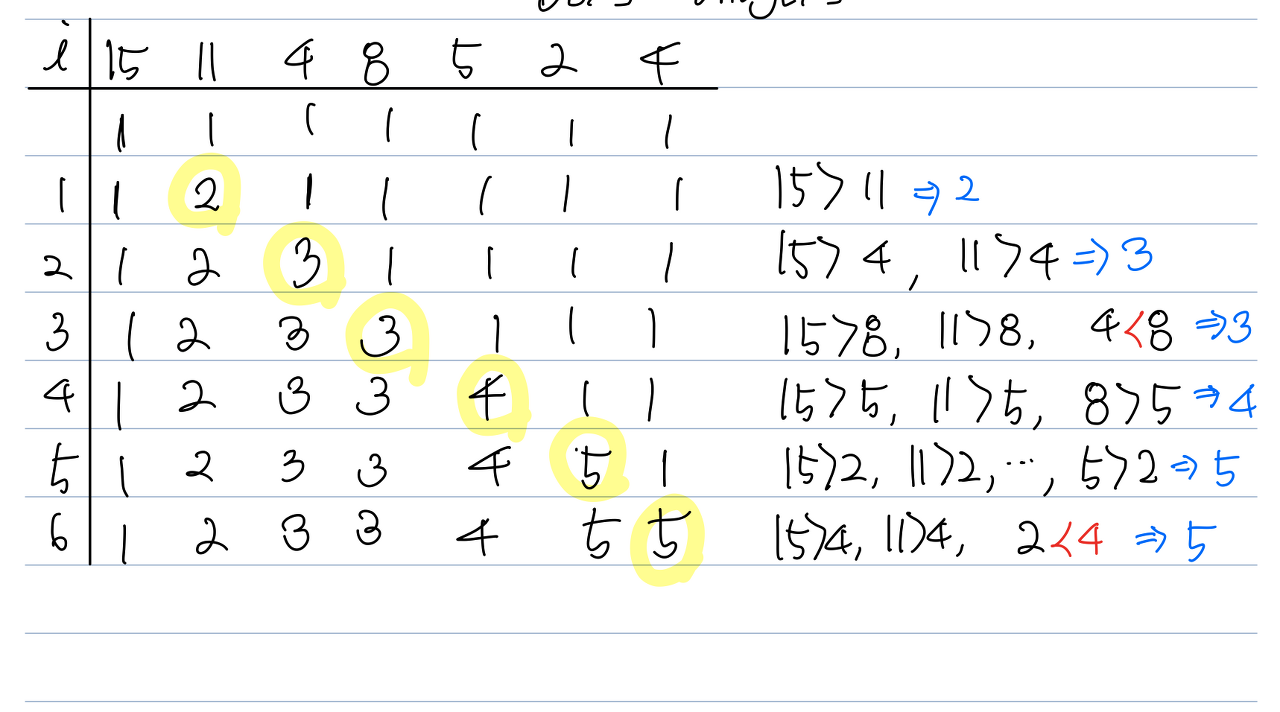 i 15 11 4 8 5 2 4
1 1 1 1 1 1 1
1 1 2 1 1 1 1 1 15>11 ⇒ 2
2 1 2 3 1 1 1 1 15>4, 11>4 ⇒ 3
3 1 2 3 3 1 1 1 15>8, 11>8, 4<8 ⇒ 3
4 1 2 3 3 4 1 1 15>5, 11>5, 8>5 ⇒ 4
5 1 2 3 3 4 5 1 15>2, 11>2, ..., 5>2 ⇒ 5
6 1 2 3 3 4 5 5 15>4, 11>4, 2<4 ⇒ 5